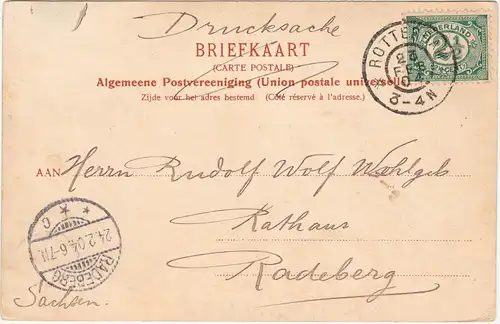 Drucksache
BRIEFKAART
(CARTE POSTALE)
Algemeene Postvereeniging (Union postale universelle)
Zijde voor het adres bestemd (Côté réservé à l'adresse.)
ROTTE
3-4N
NEDERLAND
AAN Herrn Rudolf Wolf Wohlgeb
Rathaus
Radeberg
Sachsen.
RADEBERG
24.2.04.6-7N.
* * c